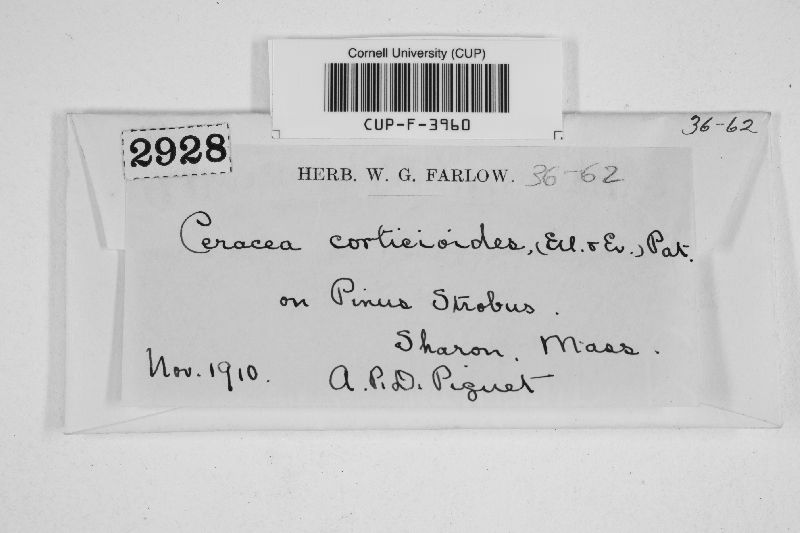 Cornell University (CUP)
CUP-F-3960
36-62
2928
HERB. W. G. FARLOW. 36-62
Ceracea corticioides, (Ell. & Ev.) Pat.
on Pinus Strobus.
Sharon, Mass.
Nov. 1910. A. P. D. Piguet